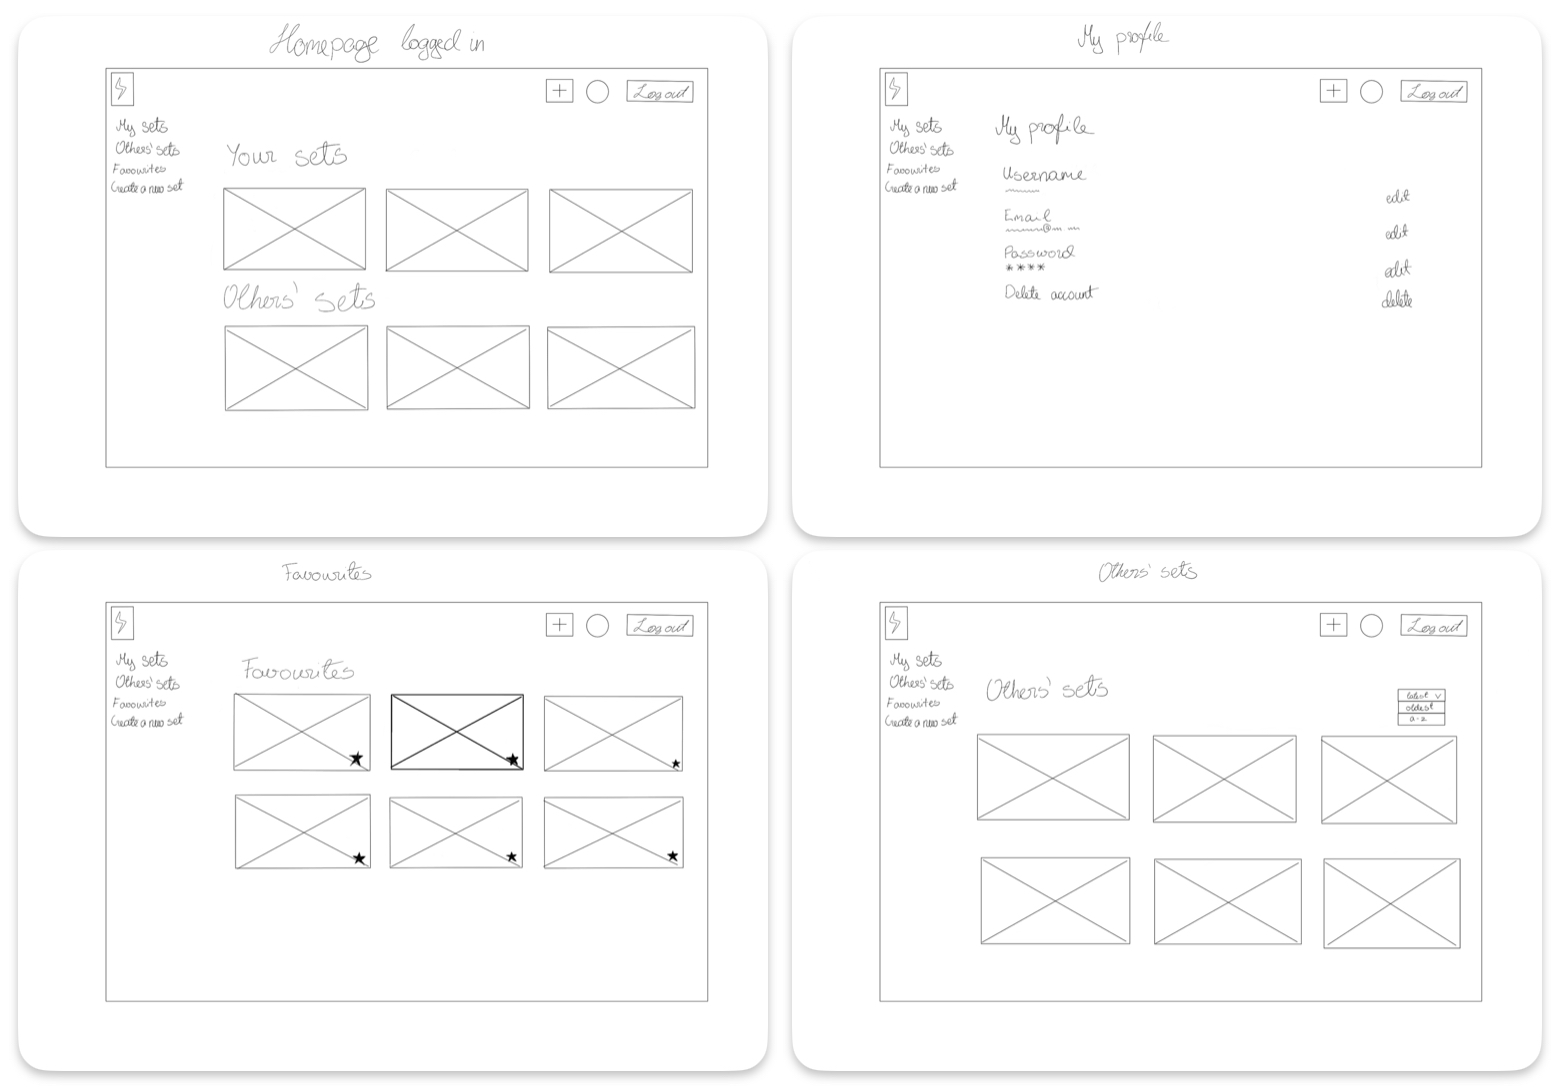 Homepage logged in
+ Log out
My sets
Others' sets
Favourites
Create a new set
Your sets
Others' sets
My profile
+ Log out
My sets
Others' sets
Favourites
Create a new set
My profile
Username
edit
Email
@
edit
Password
****
edit
Delete account
delete
Favourites
+ Log out
My sets
Others' sets
Favourites
Create a new set
Favourites
Others' sets
+ Log out
My sets
Others' sets
Favourites
Create a new set
Others' sets
latest v
oldest
a-z